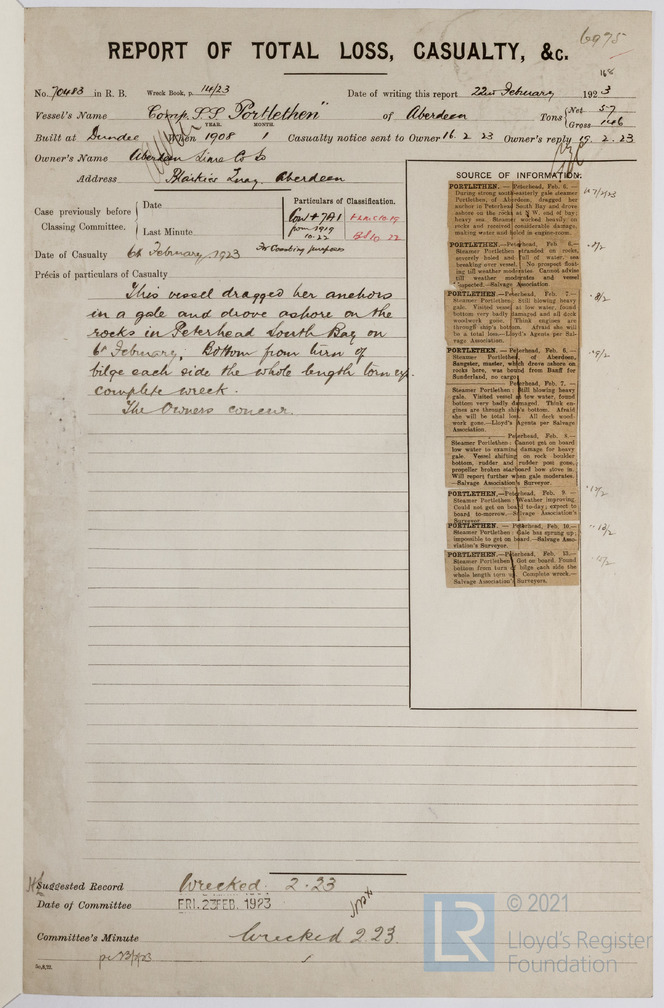 6975
REPORT OF TOTAL LOSS, CASUALTY, &c.
No. 70483 in R. B. Wreck Book, p. 114/23 Date of writing this report 22nd February 1923
Vessel's Name Comp. S.S. "Portlethen" of Aberdeen Tons Net 57
Gross 146
YEAR. MONTH.
Built at Dundee When 1908 1 Casualty notice sent to Owner 16.2.23 Owner's reply 19.2.23
Owner's Name Aberdeen Lime Co Ld
Address Blaikies Quay, Aberdeen
Case previously before Classing Committee.
Date
Last Minute
Particulars of Classification.
10.22
BS 10.22
For Coasting purposes
Date of Casualty 6th February, 1923
Précis of particulars of Casualty
This vessel dragged her anchors
in a gale and drove ashore on the
rocks in Peterhead South Bay on
6th February. Bottom from turn of
bilge each side the whole length torn up.
complete wreck.
The Owners concur.
SOURCE OF INFORMATION.
PORTLETHEN.—Peterhead, Feb. 6.—
During strong south-easterly gale steamer
Portlethen, of Aberdeen, dragged her
anchor in Peterhead South Bay and drove
ashore on the rocks at N.W. end of bay;
heavy sea. Steamer worked heavily on
rocks and received considerable damage,
making water and listed in engine-room.
PORTLETHEN.—Peterhead, Feb. 6.—
Steamer Portlethen stranded on rocks,
severely holed and full of water, sea
breaking over vessel. No prospect float-
ing till weather moderates. Cannot advise
till weather moderates and vessel
inspected.—Salvage Association
PORTLETHEN.—Peterhead, Feb. 7.—
Steamer Portlethen: Still blowing heavy
gale. Visited vessel at low water, found
bottom very badly damaged and all deck
woodwork gone. Think engines are
through ship's bottom. Afraid she will
be a total loss.—Lloyd's Agents per Sal-
vage Association.
PORTLETHEN.—Peterhead, Feb. 6.—
Steamer Portlethen, of Aberdeen,
Sangster, master, which drove ashore on
rocks here, was bound from Banff for
Sunderland, no cargo.
Peterhead, Feb. 7.
Steamer Portlethen: Still blowing heavy
gale. Visited vessel at low water, found
bottom very badly damaged. Think en-
gines are through ship's bottom. Afraid
she will be total loss. All deck wood-
work gone.—Lloyd's Agents per Salvage
Association.
Peterhead, Feb. 8.—
Steamer Portlethen: Cannot get on board
low water to examine damage for heavy
gale. Vessel shifting on rock boulder
bottom, rudder and rudder post gone,
propeller broken starboard bow stove in.
Will report further when gale moderates.
—Salvage Association's Surveyor.
PORTLETHEN.—Peterhead, Feb. 9.—
Steamer Portlethen: Weather improving.
Could not get on board to-day; expect to
board to-morrow.—Salvage Association's
Surveyor.
PORTLETHEN.—Peterhead, Feb. 10.—
Steamer Portlethen: Gale has sprung up;
impossible to get on board.—Salvage Asso-
ciation's Surveyor.
PORTLETHEN.—Peterhead, Feb. 13.—
Steamer Portlethen: Got on board. Found
bottom from turn of bilge each side the
whole length torn up. Complete wreck.—
Salvage Association's Surveyors.
Suggested Record Wrecked 2.23
Date of Committee FRI. 23 FEB. 1923
Committee's Minute Wrecked 2.23.
LR
© 2021
Lloyd's Register
Foundation